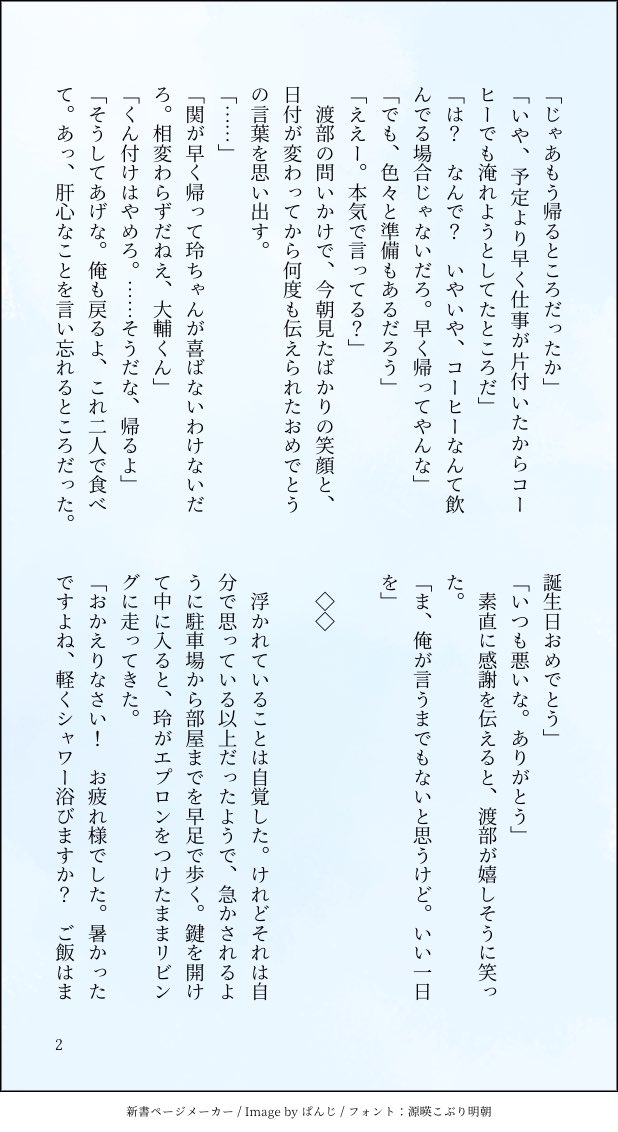 「じゃあもう帰るところだったか」
「いや、予定より早く仕事が片付いたからコー
ヒーでも淹れようとしてたところだ」
「は？　なんで？　いやいや、コーヒーなんて飲
んでる場合じゃないだろ。早く帰ってやんな」
「でも、色々と準備もあるだろう」
「ええー。本気で言ってる？」
　渡部の問いかけで、今朝見たばかりの笑顔と、
日付が変わってから何度も伝えられたおめでとう
の言葉を思い出す。
「……」
「関が早く帰って玲ちゃんが喜ばないわけないだ
ろ。相変わらずだねえ、大輔くん」
「くん付けはやめろ。……そうだな、帰るよ」
「そうしてあげな。俺も戻るよ、これ二人で食べ
て。あっ、肝心なことを言い忘れるところだった。
誕生日おめでとう」
「いつも悪いな。ありがとう」
　素直に感謝を伝えると、渡部が嬉しそうに笑っ
た。
「ま、俺が言うまでもないと思うけど。いい一日
を」
◇◇
　浮かれていることは自覚した。けれどそれは自
分で思っている以上だったようで、急かされるよ
うに駐車場から部屋までを早足で歩く。鍵を開け
て中に入ると、玲がエプロンをつけたままリビン
グに走ってきた。
「おかえりなさい！　お疲れ様でした。暑かった
ですよね、軽くシャワー浴びますか？　ご飯はま
2
新書ページメーカー / Image by ぱんじ / フォント：源暎こぶり明朝